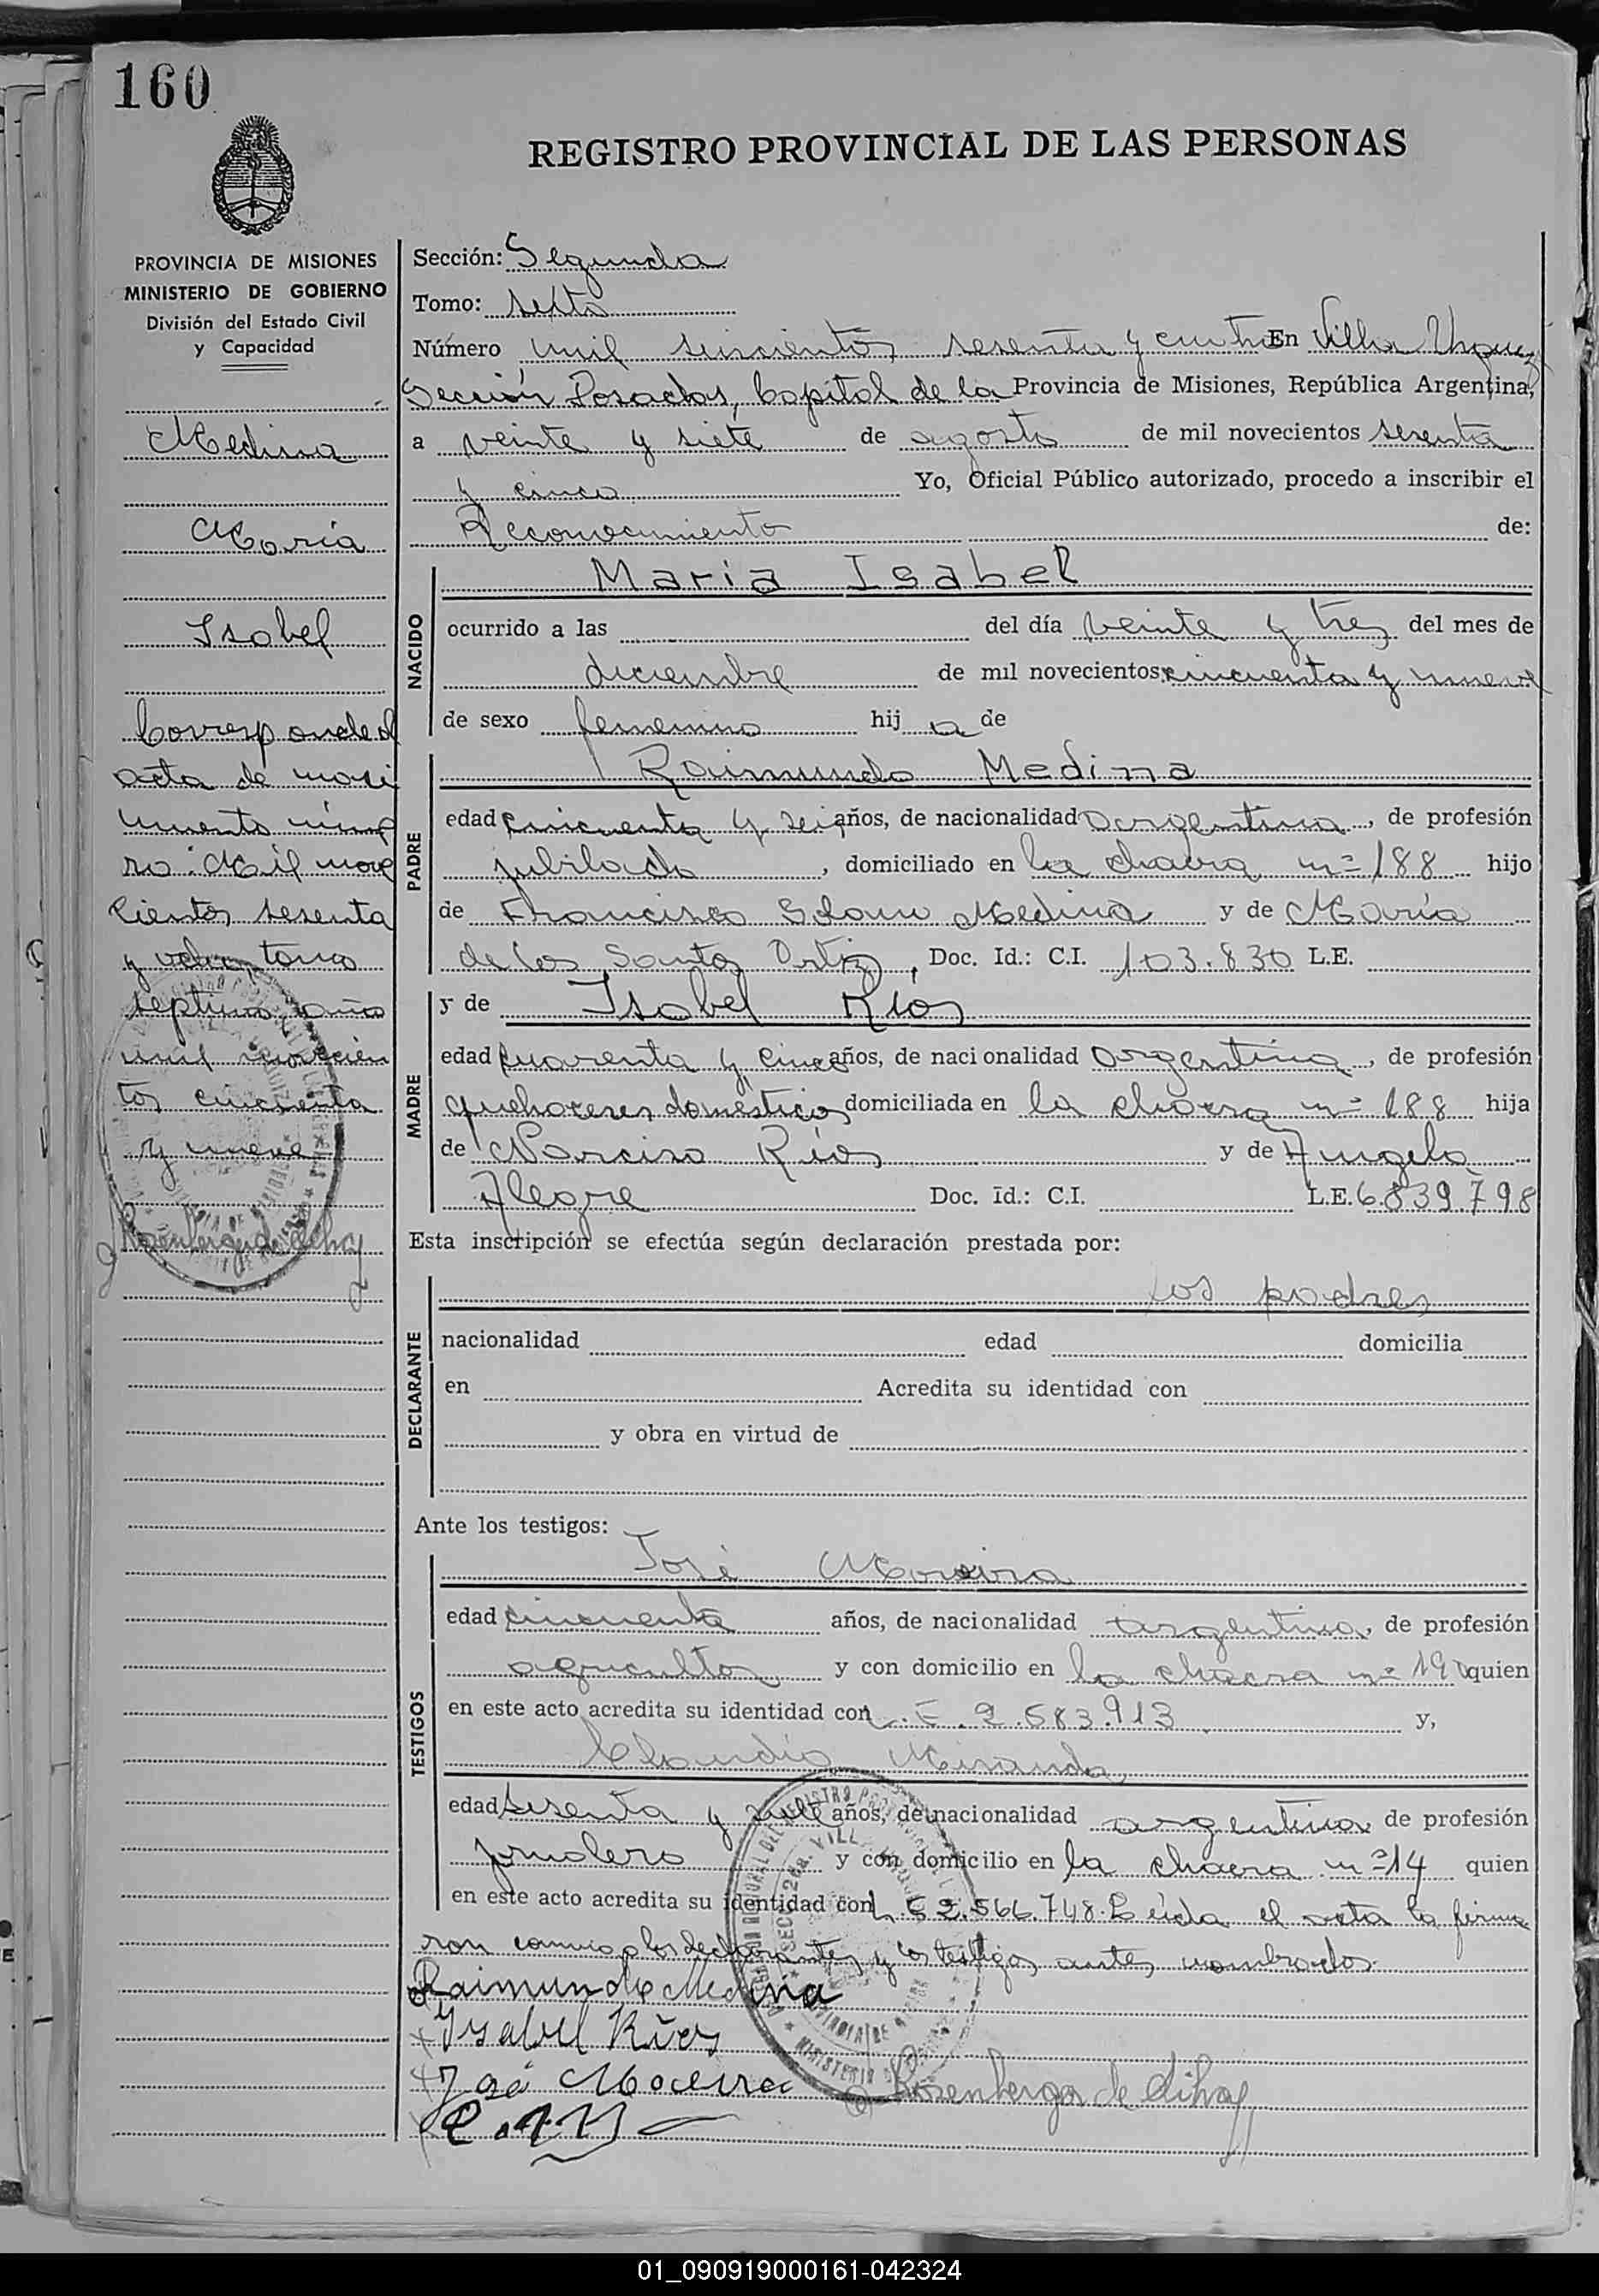 160
REGISTRO PROVINCIAL DE LAS PERSONAS
PROVINCIA DE MISIONES
MINISTERIO DE GOBIERNO
División del Estado Civil
y Capacidad
Medina
María
Isabel
Corresponde al
acta de naci
miento núme
ro: Mil nove
cientos sesenta
y ocho, tomo
septimo año
mil novecien
tos cincuenta
y nueve
Rosenberger de
Sección: Segunda
Tomo: sexto
Número mil seiscientos sesenta y cuatro En Villa Urquiza
Sección Posadas, Capital de la Provincia de Misiones, República Argentina,
a veinte y siete de agosto de mil novecientos sesenta
y cinco Yo, Oficial Público autorizado, procedo a inscribir el
Reconocimiento de:
NACIDO
Maria Isabel
ocurrido a las del día veinte y tres del mes de
diciembre de mil novecientos cincuenta y nueve
de sexo femenino hij a de
PADRE
Raimundo Medina
edad cincuenta y seis años, de nacionalidad argentina, de profesión
jubilado, domiciliado en la chacra nº 188 hijo
de Francisco Solano Medina y de María
de los Santos Ortiz, Doc. Id.: C.I. 103.830 L.E.
MADRE
y de Isabel Ríos
edad cuarenta y cinco años, de nacionalidad argentina, de profesión
quehaceres domésticos domiciliada en la chacra nº 188 hija
de Narciso Ríos y de Angela
Alegre Doc. Id.: C.I. L.E. 6.839.798
Esta inscripción se efectúa según declaración prestada por:
DECLARANTE
los padres
nacionalidad edad domicilia
en Acredita su identidad con
y obra en virtud de
Ante los testigos:
TESTIGOS
José Moreira
edad cincuenta años, de nacionalidad argentina, de profesión
agricultor y con domicilio en la chacra nº 190 quien
en este acto acredita su identidad con L.E. 2.583.913 y,
Claudio Miranda
edad sesenta y siete años, de nacionalidad argentina de profesión
jornalero y con domicilio en la chacra nº 14 quien
en este acto acredita su identidad con L.E 2.566.748. Leída el acta la firma
ron conmigo los declarantes y los testigos antes nombrados.
Raimundo Medina
Isabel Ríos
José Moreira
Rosenberger de
01_090919000161-042324